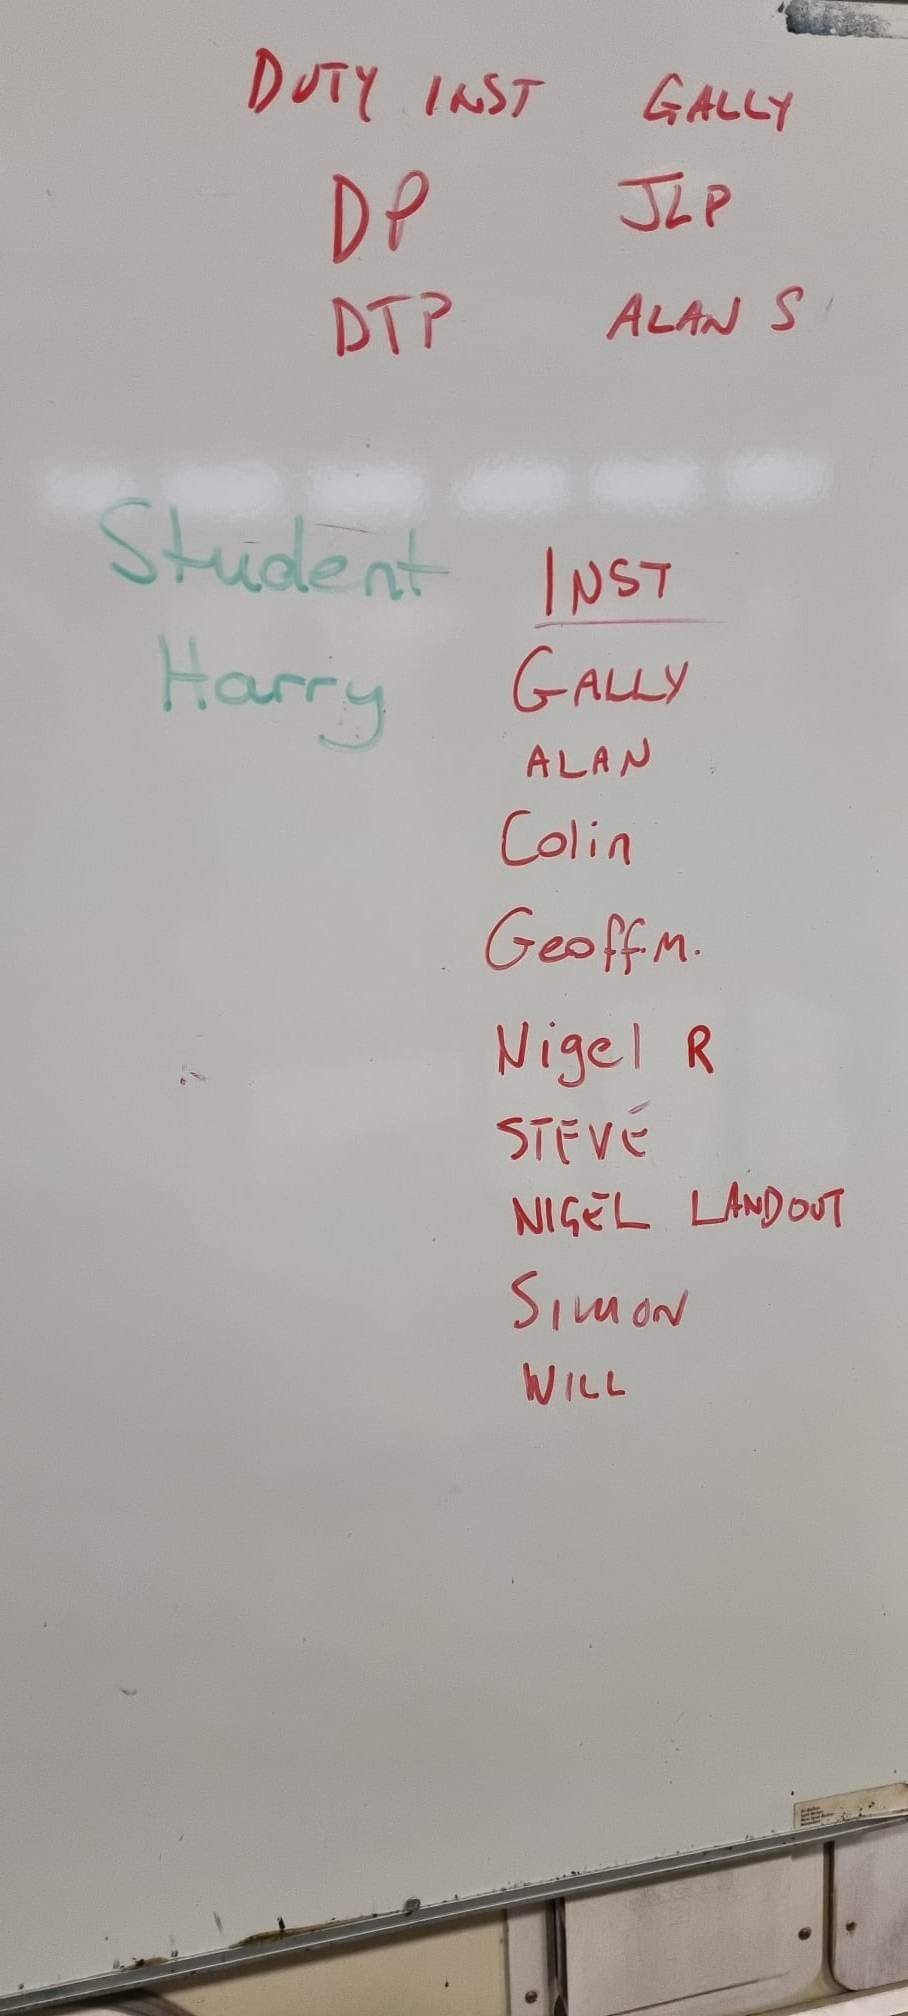 DUTY INST GALLY
DP JLP
DTP ALAN S
Student INST
Harry GALLY
ALAN
Colin
Geoff.M.
Nigel R
STEVE
NIGEL LANDOUT
SIMON
WILL